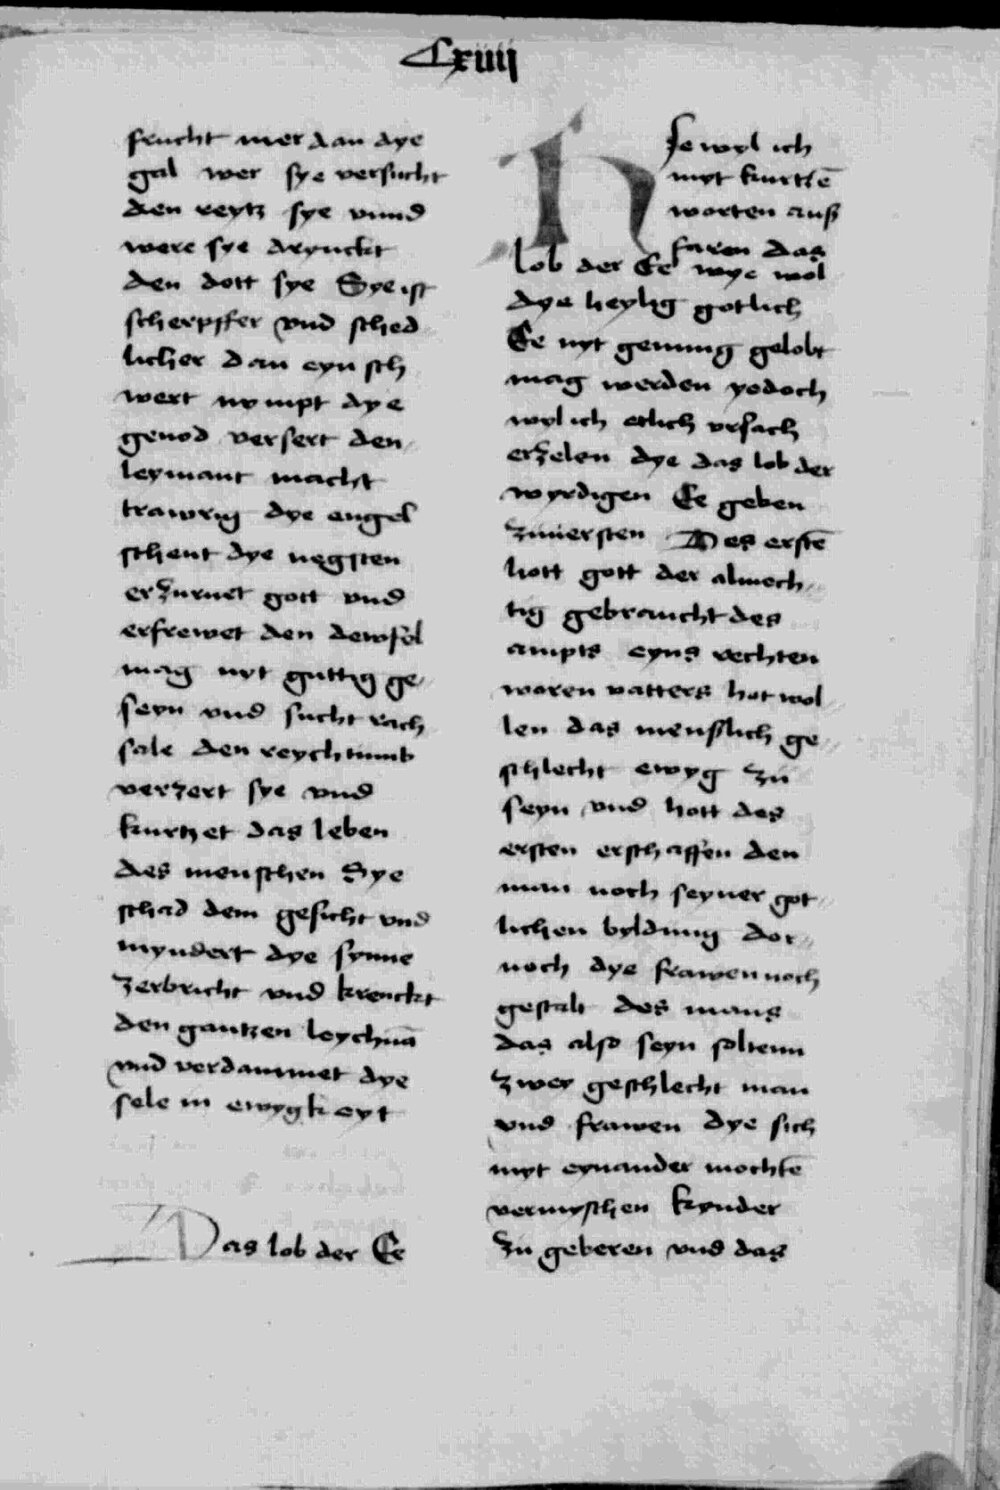 Cxiiij
frucht mer dan dye
gal wer sye versucht
den reytz sye vnnd
were sye drynckt
den dott sye Sye ist
scherpffer vnd sched
licher dan eyn sch
wert nympt dye
genod versert den
leymant macht
trawrig dye engel
schent dye negsten
erzurnet gott vnd
erfrewet den dewfel
mag nyt guttig ge
seyn vnd sucht rach
sale den reychtumb
verzert sye vnd
kurtzet das leben
des menschen Sye
schad dem gesicht vnd
myndert dye synne
zerbricht vnd krenckt
den gantzen leychnā
vnd verdammet dye
sele in ewygkeyt
Das lob der Ee
Hse wyl ich
myt kurtzē
worten auß
faren das
lob der Ee wye wol
dye heylig gotlich
Ee nyt genung gelobt
mag werden yedoch
wyl ich etlich vrsach
erzelen dye das lob der
wyrdigen Ee geben
zuuersten Des erstē
hott gott der almech
tig gebraucht des
ampts eyns rechten
waren vatters hat wol
len das menslich ge
schlecht ewyg zu
seyn vnd hott des
ersten erschaffen den
man noch seyner got
lichen byldung dor
noch dye frawen noch
gestalt des mans
das also seyn soltenn
zwey geschlecht man
vnd frawen dye sich
myt eynander mochtē
vermyschen kynder
zu geberen vnd das